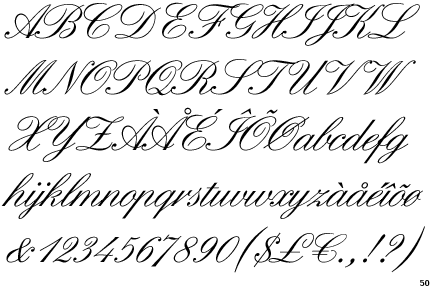 ABCDEFGHIJKL
MNOPQRSTUVW
XYZÀÅÉÎÕØabcdefg
hijklmnopqrstuvwxyzàåéîõø
&1234567890($£€.,!?)
50